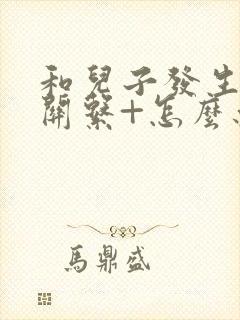 和兒子發生
關繫+怎麼
馬鼎盛